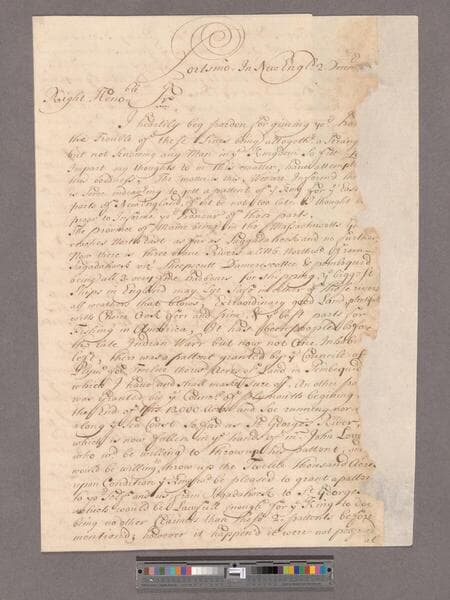 Portsmo In New Engld 2 Decem
Right Honoble Sr
I heartily beg pardon for giveing yr
the Trouble of these Lines being altogethr a Strang
but not knowing any Man in ye Kingdom so fitt to
Impart my thoughts to in this matter, have attempt
this boldness. The matter is this Wee are Informed
is some indeavring to gett a pattent of ye King for ye East
parts of New England, if it be not too late I thought
proper to Informe yr Honour of those parts.
The province of Maine being in the Massachusetts
reaches North East as far as Saggadahock and no further
Now there is three fine Rivers a little Northward from
Sagadahock viz Sheepscutt Damerscotte & pemaquid
being all 3 very fine Harbours for Shipping ye biggest
Ships in England may lye safe in either of these rivers
all weathers that blows, Extraordinary good Land, plenty
with Choice Oak Firr and pine, & ye best parts for
Fishing in America, It has been peopled before
the late Indian Warr but now not One Inhab
left, there was a pattent granted by ye Councill of
Plymo for Twelve thous Acres of Land in Pemaquid
which I have and shall make sure of. An other
was Granted by ye Councill of Plymouth begining
the End of this 12000 Acres and soe running
along ye Sea Coast so far as St Georges River
which is now fallen into ye hands of mr John
who will be willing to throw up his pattent
would be willing throw up the Twelve Thousand Acres
upon Condition ye King will be pleased to grant a patt
to yr self and us from Sagadahock to St Georges
which would be Lawfull enough for ye King to doe
being no other Claimers than these 2 pattents before
mentioned; however it happend it were not